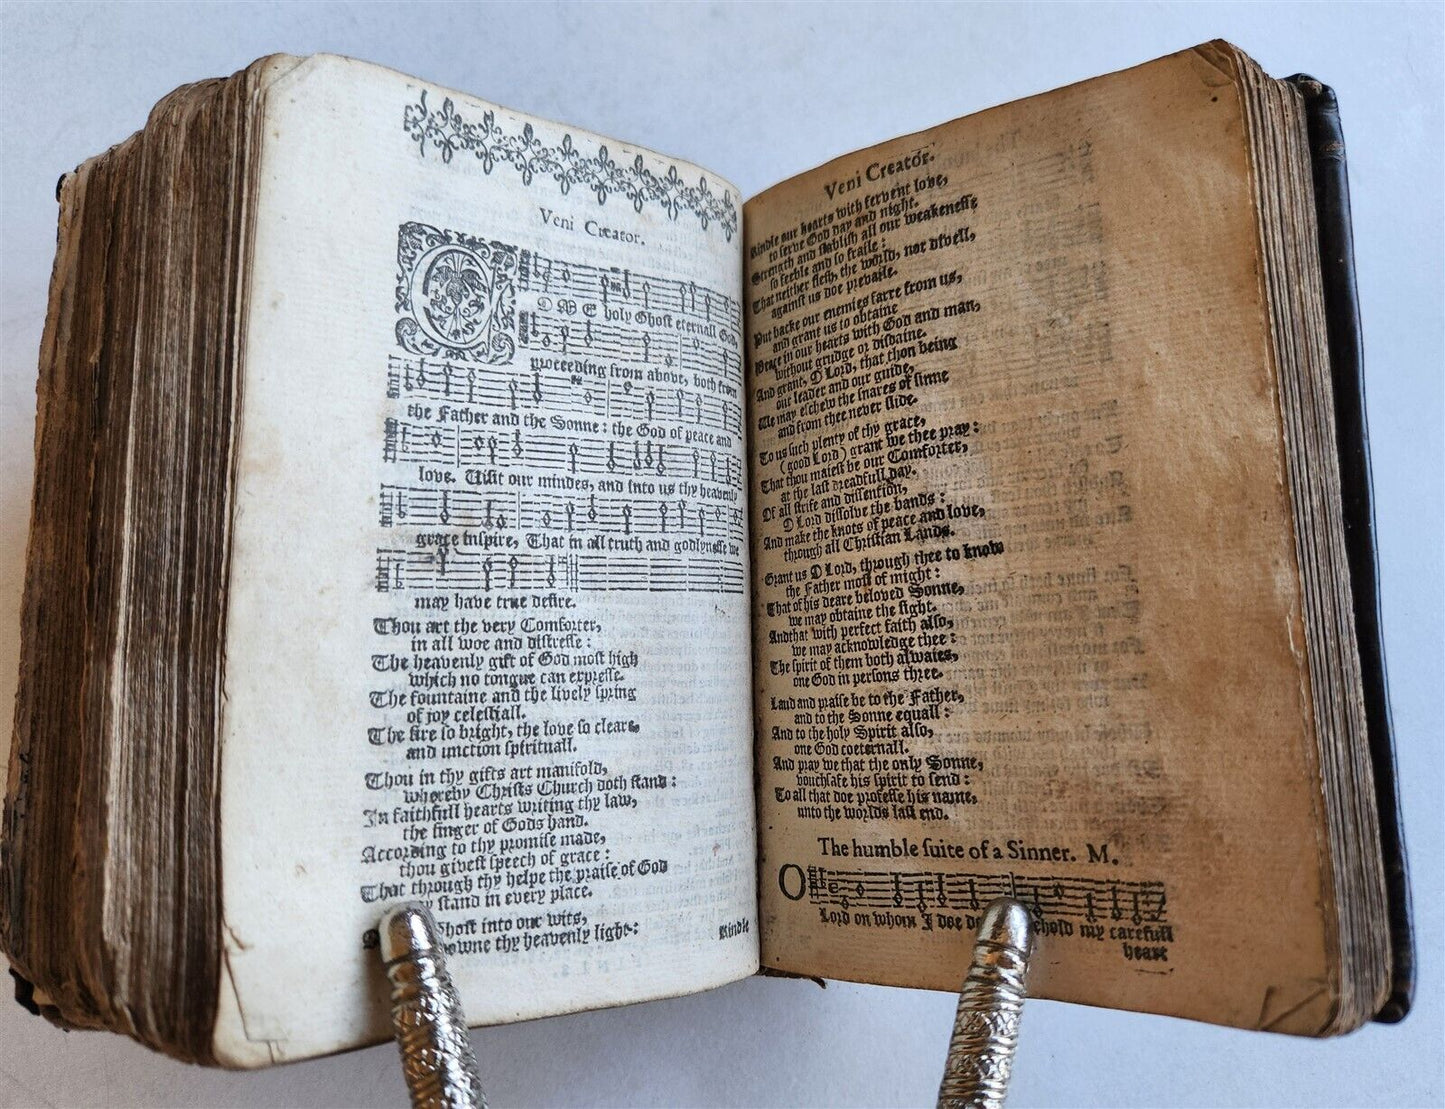 Veni Creator.
COME holy Ghost eternall God,
proceeding from above, both from
the Father and the Sonne: the God of peace and
love. Visit our mindes, and into us thy heavenly
grace inspire, That in all truth and godlynesse we
may have true desire.
Thou art the very Comforter,
in all woe and distresse:
The heavenly gift of God most high
which no tongue can expresse.
The fountaine and the lively spring
of joy celestiall.
The fire so bright, the love so cleare,
and unction spirituall.
Thou in thy gifts art manifold,
whereby Christs Church doth stand:
In faithfull hearts writing thy law,
the finger of Gods hand.
According to thy promise made,
thou givest speech of grace:
That through thy helpe the praise of God
stand in every place.
Ghost into our wits,
downe thy heavenly light:
Kindle
Veni Creator.
Kindle our hearts with fervent love,
to serve God day and night.
Strength and stablish all our weakenesse
so feeble and so fraile:
That neither flesh, the world, nor divell,
against us doe prevaile.
Put backe our enemies farre from us,
and grant us to obtaine
Peace in our hearts with God and man,
without grudge or disdaine.
And grant, O Lord, that thou being
our leader and our guide,
We may eschew the snares of sinne
and from thee never slide.
To us such plenty of thy grace,
(good Lord) grant we thee pray:
That thou maiest be our Comforter,
at the last dreadfull day.
Of all strife and dissention,
O Lord dissolve the bands:
And make the knots of peace and love,
through all Christian Lands.
Grant us O Lord, through thee to know
the Father most of might:
That of his deare beloved Sonne,
we may obtaine the sight.
Andthat with perfect faith also,
we may acknowledge thee:
The spirit of them both alwaies,
one God in persons three.
Laud and praise be to the Father,
and to the Sonne equall:
And to the holy Spirit also,
one God coeternall.
And pray we that the only Sonne,
vouchsafe his spirit to send:
To all that doe professe his name,
unto the worlds last end.
The humble suite of a Sinner. M.
O Lord on whom I doe my carefull
heart